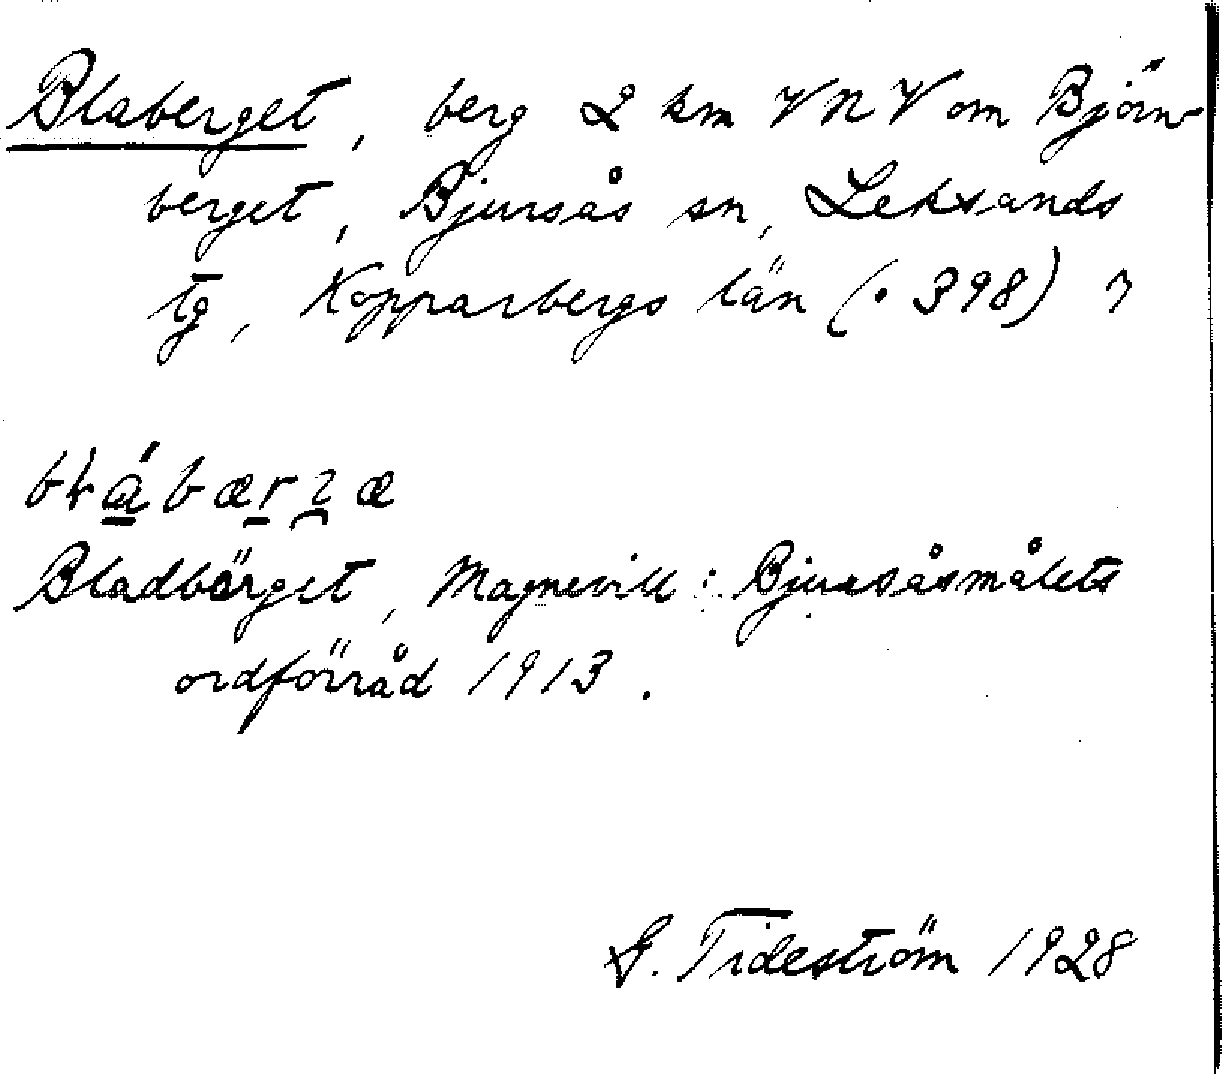 Blaberget, berg 2 km VNV om Björn-
berget, Bjursås sn, Leksands
tg, Kopparbergs län (• 398)
Bladbärget, Magnevill: Bjursåsmålets
ordförråd 1913.
G. Tideström 1928